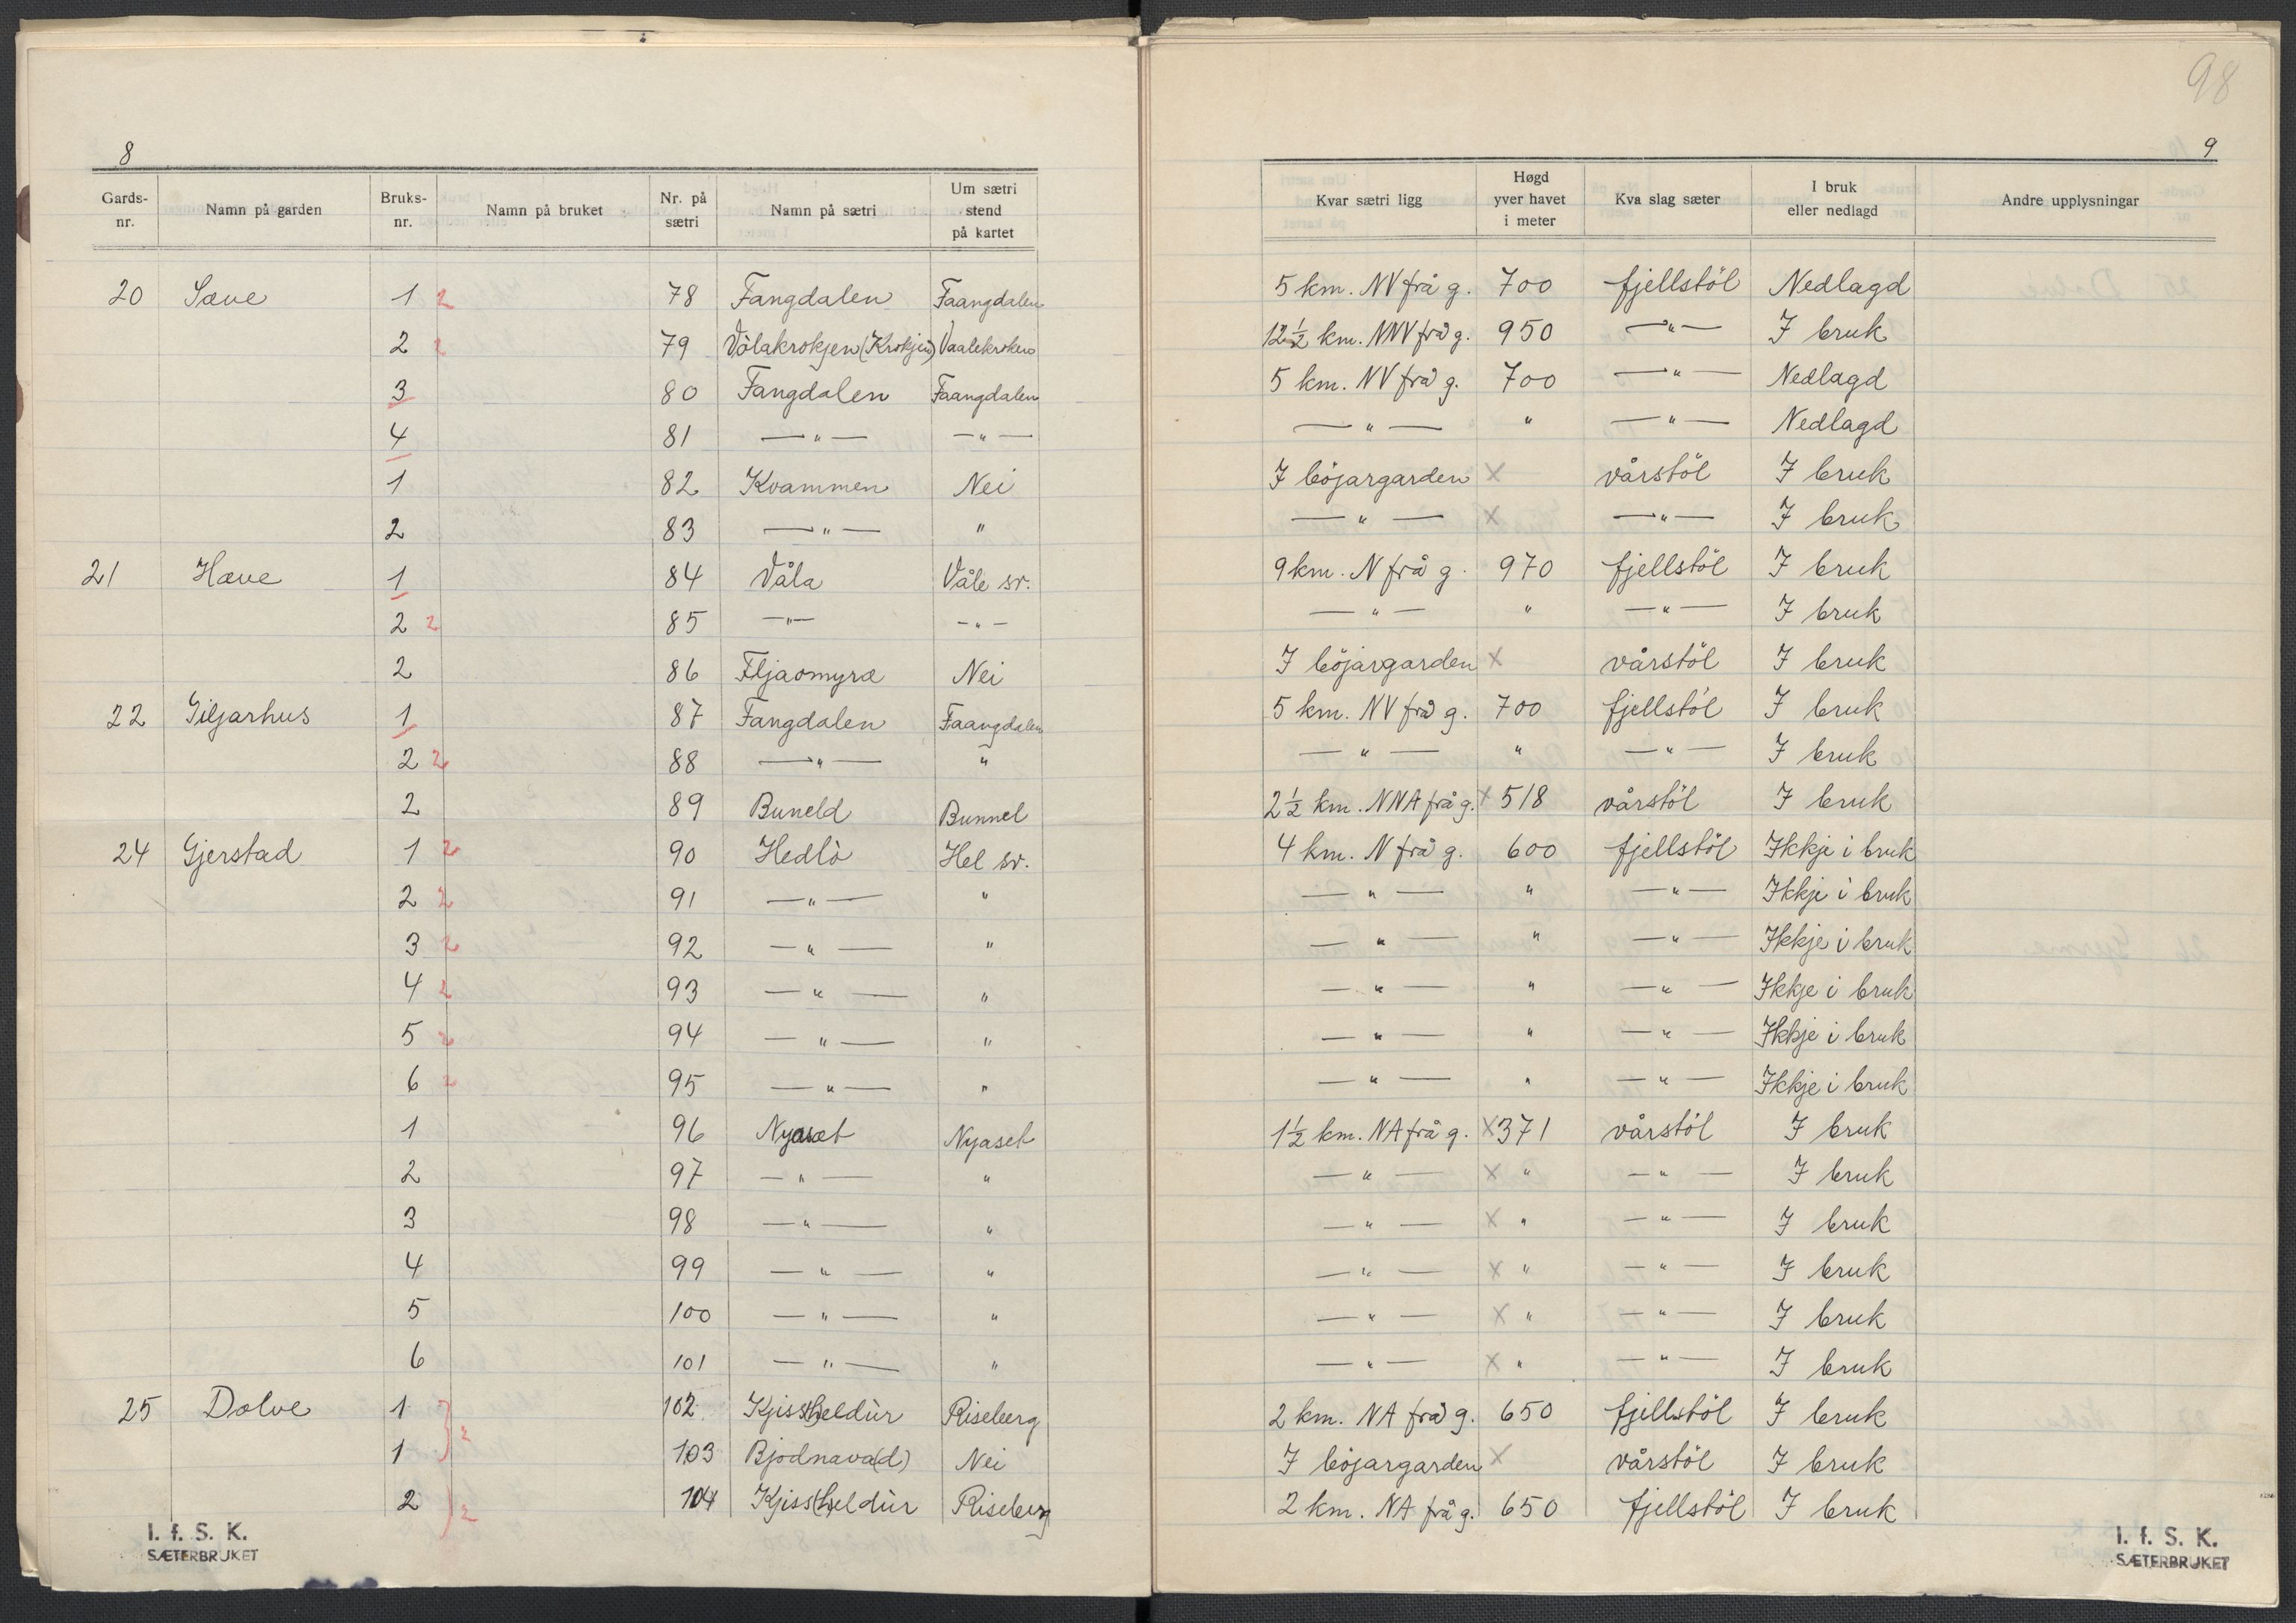 98
8
9
Gards-nr. | Namn på garden | Bruks-nr. | Namn på bruket | Nr. på sætri | Namn på sætri | Um sætri stend på kartet | Kvar sætri ligg | Høgd yver havet i meter | Kva slag sæter | I bruk eller nedlagd | Andre upplysningar
20 Sæve 1 2 78 Fangdalen Faangdalen 5 km. NV frå g. 700 fjellstöl Nedlagd
2 2 79 Vòlakrokjen (Krokjen) Vaalekroken 12½ km. NNV frå g. 950 —"— I bruk
3 80 Fangdalen Faangdalen 5 km. NV frå g. 700 —"— Nedlagd
4 81 —"— —"— —"— " —"— Nedlagd
1 82 Kvammen Nei I böjargarden X vårstöl I bruk
2 83 —"— " —"— X —"— I bruk
21 Hæve 1 84 Våla Våle sr. 9 km. N frå g. 970 fjellstöl I bruk
2 2 85 —"— —"— —"— " —"— I bruk
2 86 Fljaomyra Nei I böjargarden X vårstöl I bruk
22 Giljarhus 1 87 Fangdalen Faangdalen 5 km. NV frå g. 700 fjellstöl I bruk
2 2 88 —"— " —"— " —"— I bruk
2 89 Buneld Bunnel 2½ km. NNA frå g. X 518 vårstöl I bruk
24 Gjerstad 1 2 90 Hedlò Hel sr. 4 km. N frå g. 600 fjellstöl Ikkje i bruk
2 2 91 —"— " —"— " —"— Ikkje i bruk
3 2 92 —"— " —"— " —"— Ikkje i bruk
4 2 93 —"— " —"— " —"— Ikkje i bruk
5 2 94 —"— " —"— " —"— Ikkje i bruk
6 2 95 —"— " —"— " —"— Ikkje i bruk
1 96 Nyaset Nyaset 1½ km. NA frå g. X 371 vårstöl I bruk
2 97 —"— " —"— X " —"— I bruk
3 98 —"— " —"— X " —"— I bruk
4 99 —"— " —"— X " —"— I bruk
5 100 —"— " —"— X " —"— I bruk
6 101 —"— " —"— X " —"— I bruk
25 Dolve 1 2 102 Kjiss(h)eldùr Riseberg 2 km. NA frå g. 650 fjellstöl I bruk
1 103 Bjodnava(d) Nei I böjargarden X vårstöl I bruk
2 2 104 Kjiss(h)eldùr Riseberg 2 km. NA frå g. 650 fjellstöl I bruk
I. f. S. K.
SÆTERBRUKET
I. f. S. K.
SÆTERBRUKET